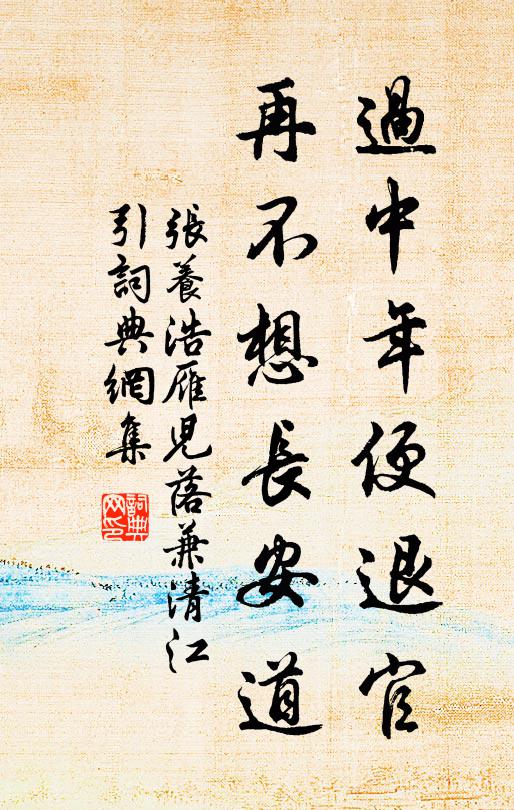 過中年便退官
再不想長安道
張養浩雁兒落兼清江
引詞典網集
詞典
网印